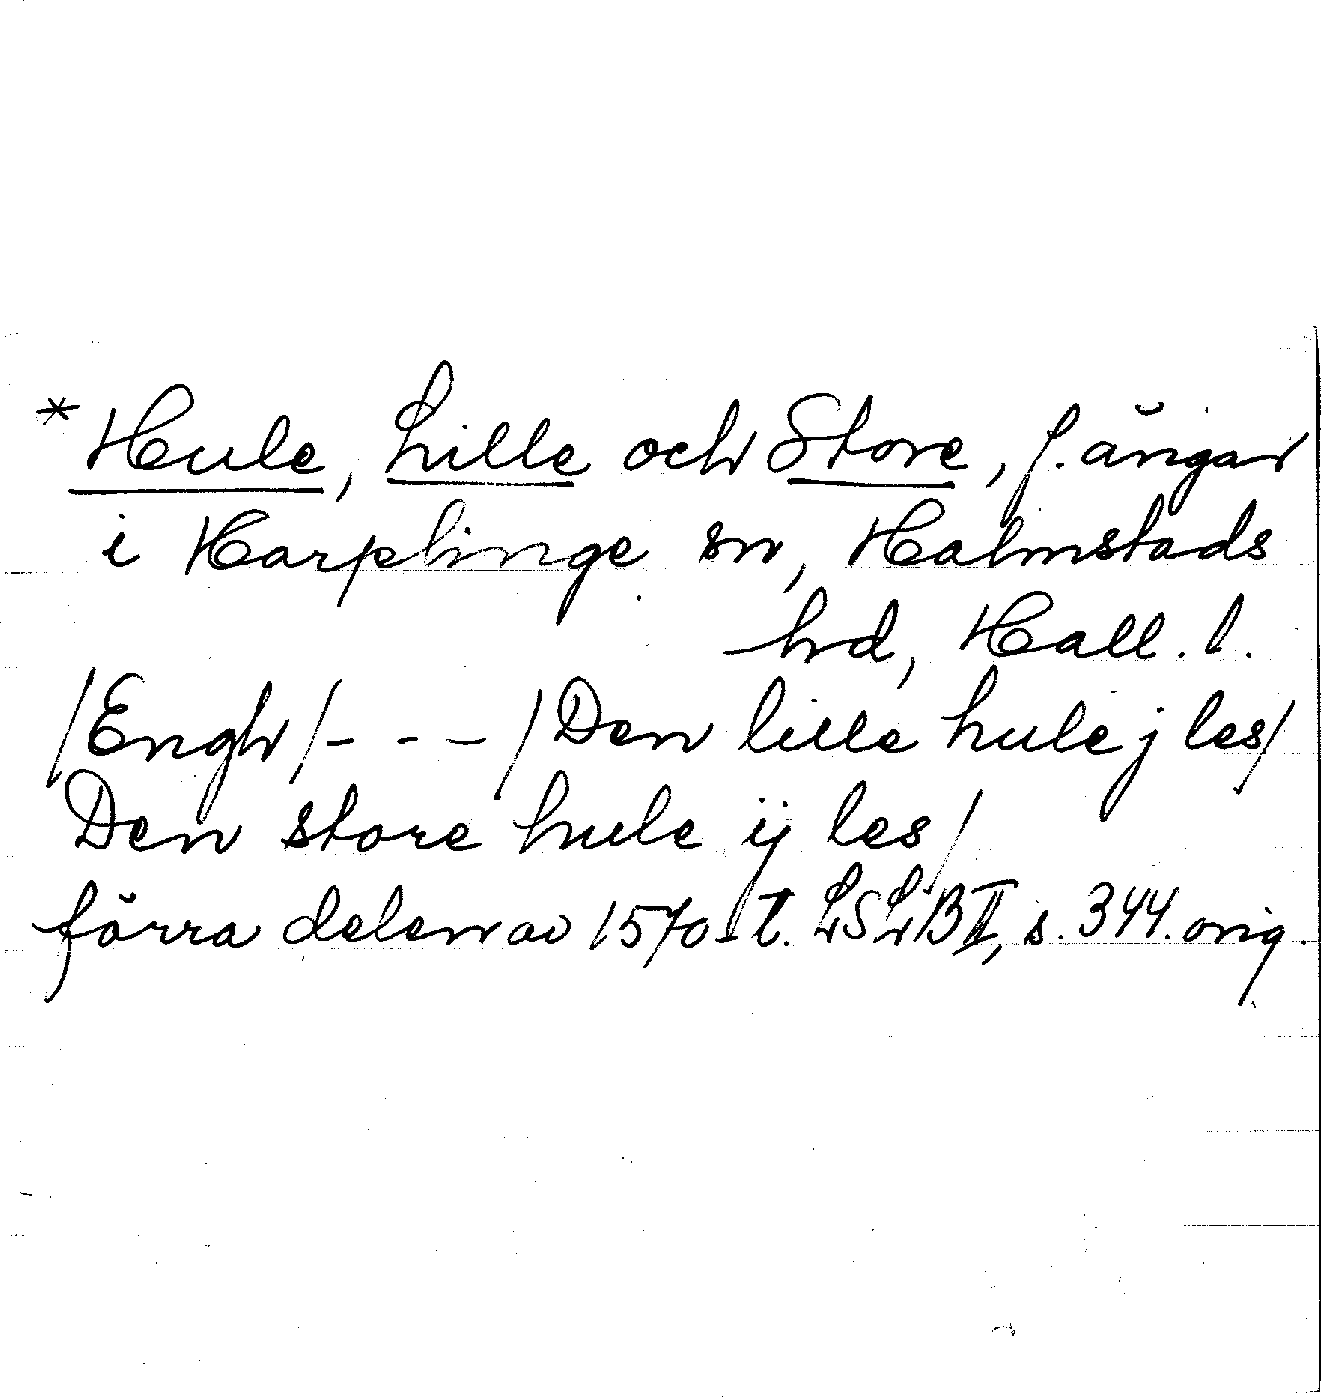 *Hule, Lille och Store, f. ängar
i Harplinge sn, Halmstads
hd, Hall. l.
/Engh/- - -/Den lille hule j les/
Den store hule ij les/
förra delen av 1570-t. LSLB II, s. 344. orig.